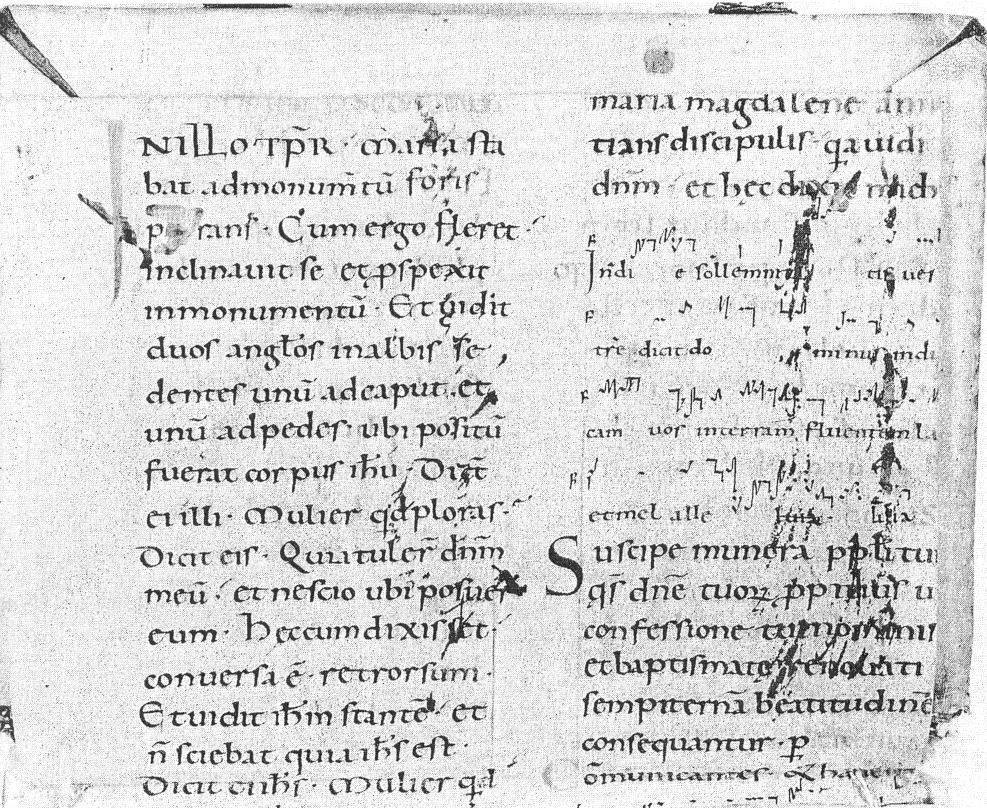 NILLO TP̄R · Maria sta
bat ad monum̄tū foris
p rans · Cum ergo fleret ·
inclinavit se et ꝓspexit
in monumentū · Et vidit
duos angłos in albis se
dentes unū ad caput et
unū ad pedes · ubi positū
fuerat corpus ih̄u · Dict
ei illi · Mulier qd ploras ·
Dicit eis · Quia tuler̄ dn̄m
meū · et nescio ubi posuer
eum · Hec cum dixisset ·
conversa ē · retrorsum ·
Et vidit ih̄m stantē et
n̄ sciebat quia ih̄s est ·
Dicit ei ih̄s · Mulier qd
maria magdalene
tians discipulis · qa uidi
dn̄m · et hec dixit mich
In di e sollemni tis ues
tre dicit do minus indu
cam vos in terram fluentem la
et mel alle luia
Suscipe munera ppłi tui
qs̄ dn̄e tuoꝝ ꝓpitius u
confessione tui nominis
et baptismate renovati
sempiternā beatitudinē
consequantur · p
Om̄unicantes ·